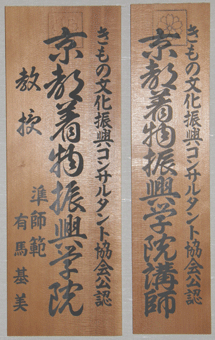 きもの文化振興コンサルタント協会公認
京都着物振興学院
教授
準師範
有馬基美
きもの文化振興コンサルタント協会公認
京都着物振興学院講師